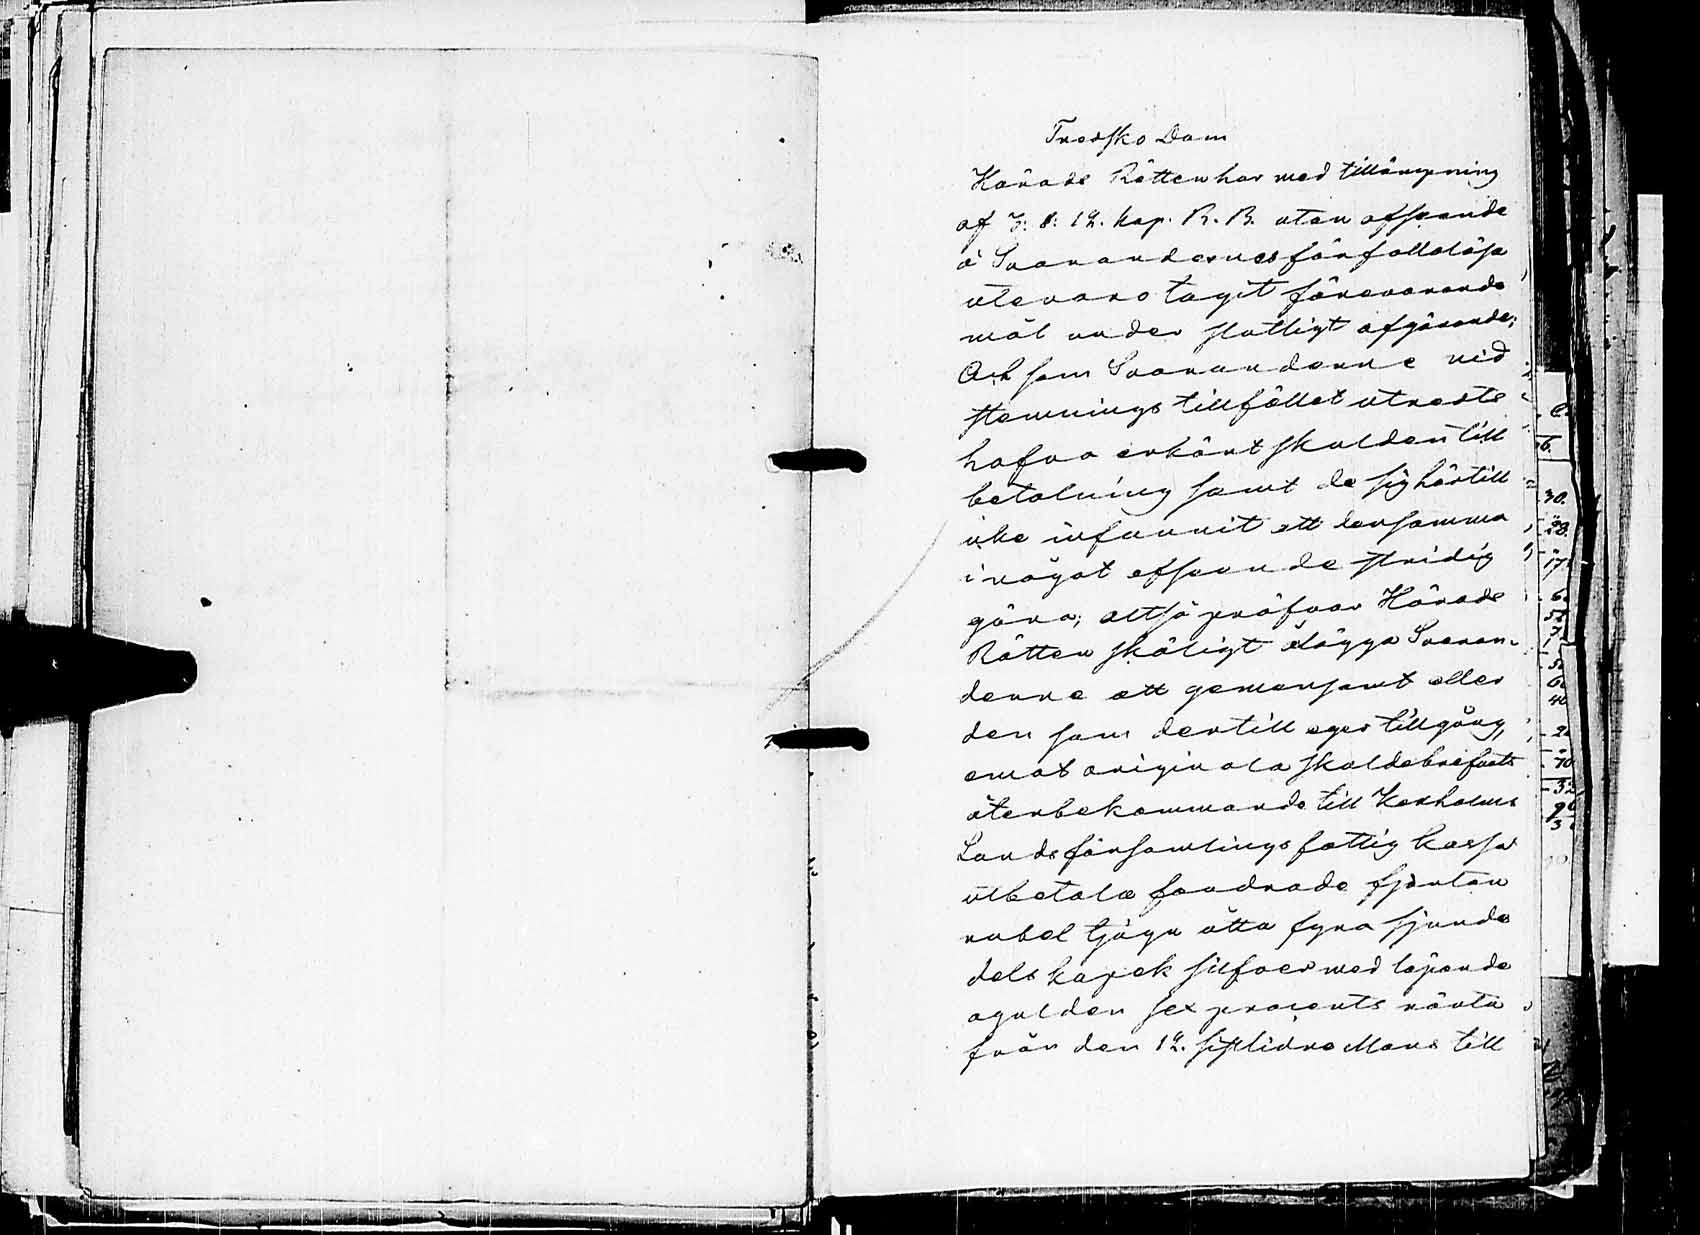 Tredsko Dom
Härads Rätten har med tillämpning
af 3. §. 12. kap. R. B. utan afseende
å Svarandernes förfallolösa
utevaro tagit förevarande
mål under slutligt afgörande;
Och som Svarandene vid
stemnings tillfället utredts
hafva erkänt skulden till
betalning samt de sig härtill
icke infunnit att densamma
i något afseende stridig
göra; altså pröfvar Härads
Rätten skäligt ålägga Svaran¬
dene att gemensamt eller
den som dertill eger tillgång,
emot originala skuldebrefvets
återbekommande till Kexholms
Landsförsamlings fattig kassa
utbetala hundrade fjorton
rubel tjugu åtta fyra sjunde
dels kopek silfver med löpande
ogulden sex procents ränta
från den 12. sistlidne Mars till
30.
28.
17
6.
40
70